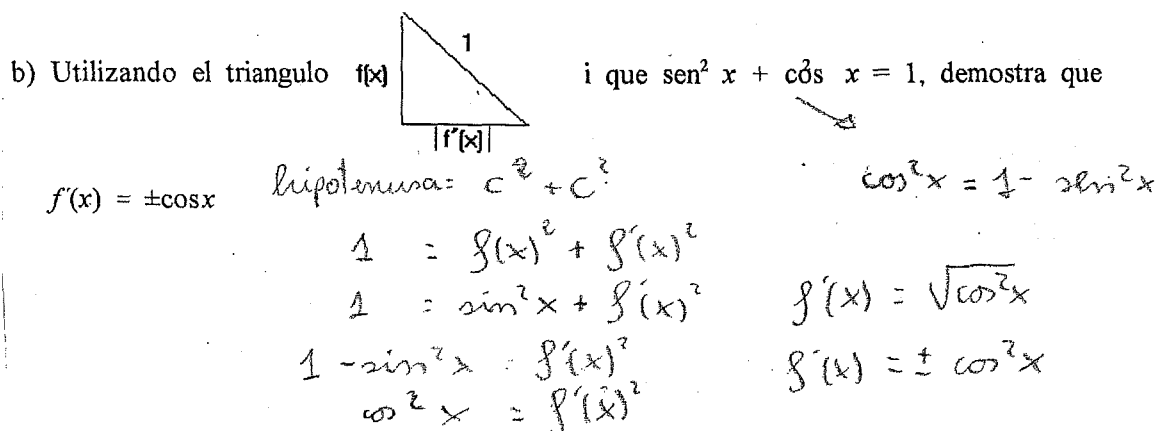 b) Utilizando el triangulo f(x) 1 |f´(x)| i que sen² x + cos² x = 1, demostra que
f´(x) = ±cosx
hipotenusa = c² + c²
cos²x = 1 - sen²x
1 = f(x)² + f´(x)²
1 = sin²x + f´(x)²
f´(x) = √cos²x
1 - sin²x = f´(x)²
f´(x) = ± cos²x
cos²x = f´(x)²